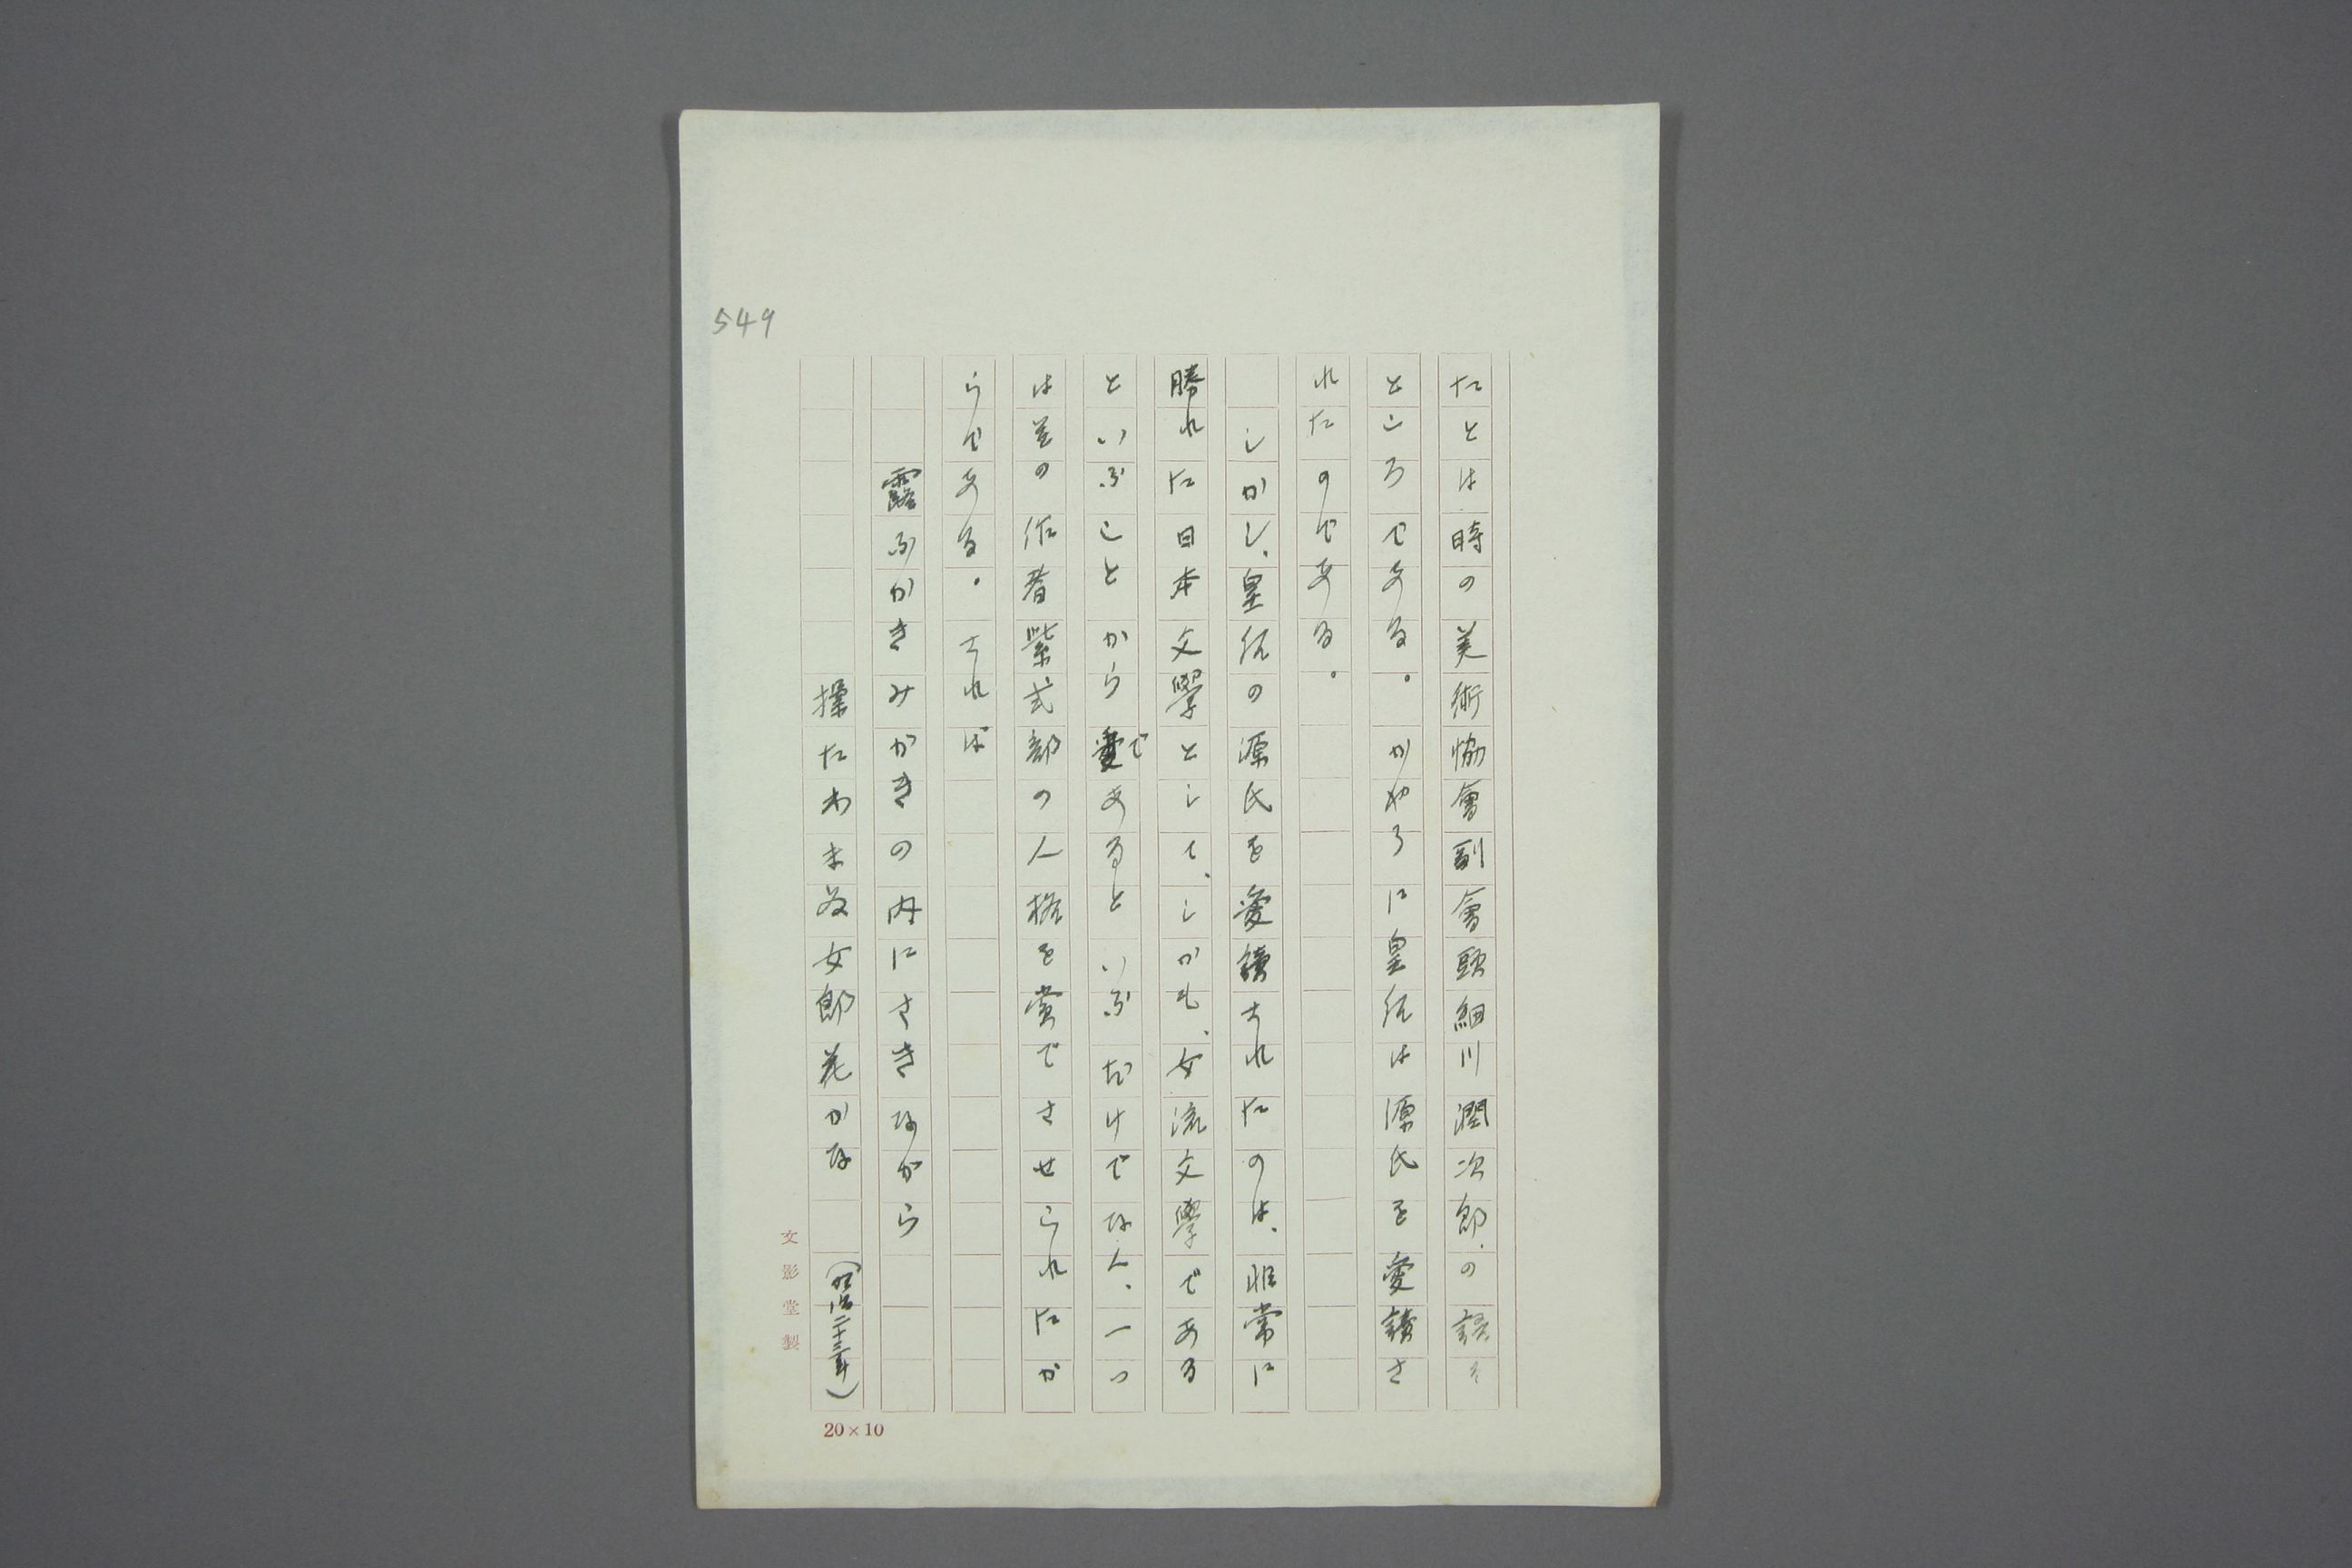 549
たとは時の美術協會副會頭細川潤次郎の語る
ところである。かやうに皇后は源氏を愛讀さ
れたのである。
しかし、皇后の源氏を愛讀されたのは、非常に
勝れた日本文學として、しかも、女流文學である
といふことからであるといふだけでなく、一つ
は其の作者紫式部の人格を賞でさせられたか
らである。されば
露ふかきみかきの内にさきながら
操たわまぬ女郎花かな (明治二十三年)
文影堂製
20×10